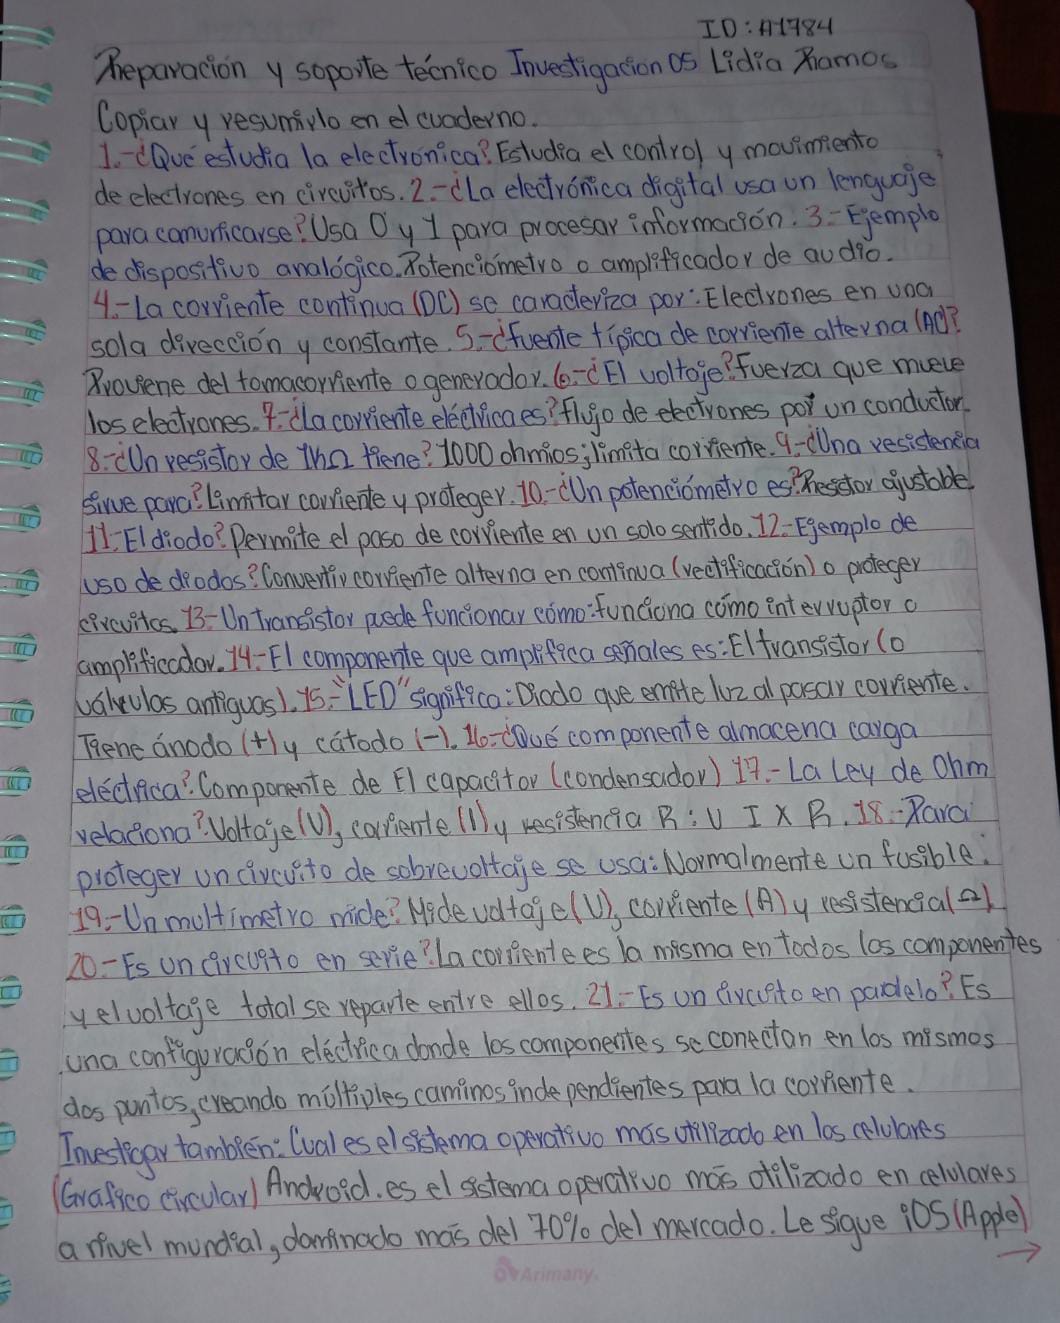 ID: A1784
Reparación y soporte técnico Investigación 05 Lidia Ramos
Copiar y resumirlo en el cuaderno.
1.-¿Qué estudia la electrónica? Estudia el control y movimiento
de electrones en circuitos. 2.-¿La electrónica digital usa un lenguaje
para comunicarse? Usa 0 y 1 para procesar información. 3.- Ejemplo
de dispositivo analógico. Potenciómetro o amplificador de audio.
4.- La corriente continua (DC) se caracteriza por: Electrones en una
sola dirección y constante. 5.-¿fuente típica de corriente alterna (AC)?
Proviene del tomacorriente o generador. 6.-¿El voltaje? Fuerza que mueve
los electrones. 7.-¿La corriente eléctrica es? flujo de electrones por un conductor.
8.-¿Un resistor de 1kΩ tiene? 1000 ohmios; limita corriente. 9.-¿Una resistencia
sirve para? Limitar corriente y proteger. 10.-¿Un potenciómetro es? Resistor ajustable.
11.- El diodo? Permite el paso de corriente en un solo sentido. 12.- Ejemplo de
uso de diodos? Convertir corriente alterna en continua (rectificación) o proteger
circuitos. 13.- Un Transistor puede funcionar cómo: funciona cómo interruptor o
amplificador. 14.- El componente que amplifica señales es: El transistor (o
válvulas antiguas). 15.- "LED" significa: Diodo que emite luz al pasar corriente.
Tiene ánodo (+) y cátodo (-). 16.-¿Qué componente almacena carga
eléctrica? Componente de El capacitor (condensador) 17.- La Ley de Ohm
relaciona? Voltaje (V), corriente (I) y resistencia R: V I X R. 18.- Para
proteger un circuito de sobrevoltaje se usa: Normalmente un fusible.
19.- Un multímetro mide? Mide voltaje (V), corriente (A) y resistencia (Ω)
20.- Es un circuito en serie? La corriente es la misma en todos los componentes
y el voltaje total se reparte entre ellos. 21.- Es un circuito en paralelo? Es
una configuración eléctrica donde los componentes se conectan en los mismos
dos puntos, creando múltiples caminos independientes para la corriente.
Investigar también: Cual es el sistema operativo más utilizado en los celulares
(Gráfico circular) Android. es el sistema operativo más utilizado en celulares
a nivel mundial, dominado más del 70% del mercado. Le sigue iOS (Apple)
→
Arimany.